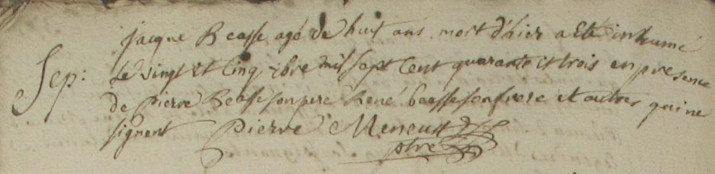 jacque Beasse agé de huit ans mort d'hier a eté inhumé
Sep: le vingt et cinq 7bre mil sept cent quarante et trois en presence
de pierre Beasse son pere René beasse son frere et autres qui ne
signent Pierre Meneust
ptre